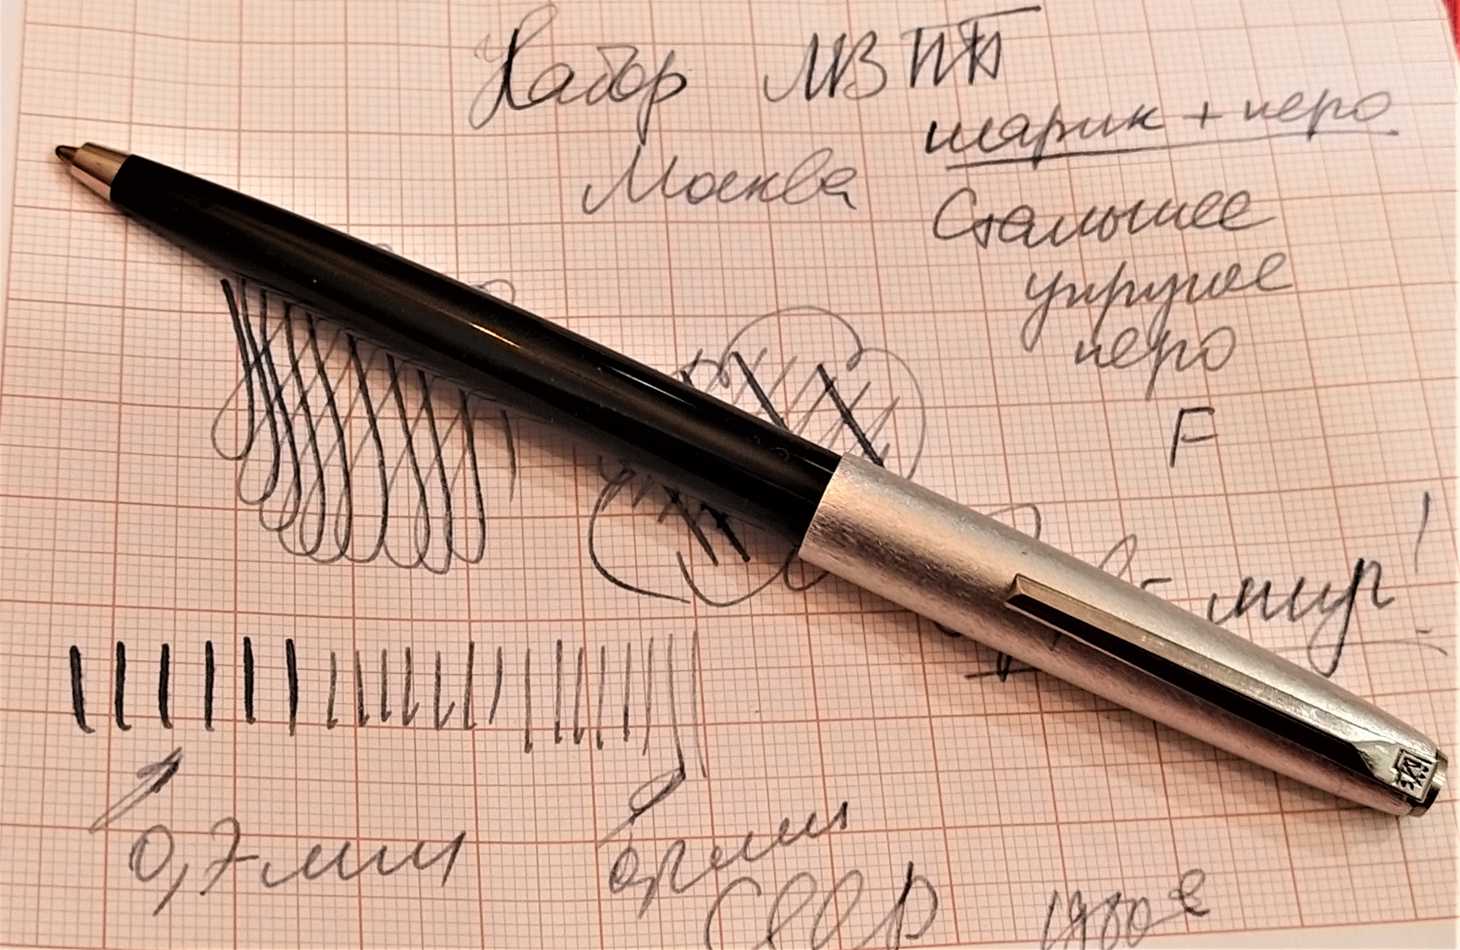 Набор МЗПП
шарик + перо
Москва
Стальное
упругое
перо
F
мир!
0,7 мм
мм
СССР 1980 г